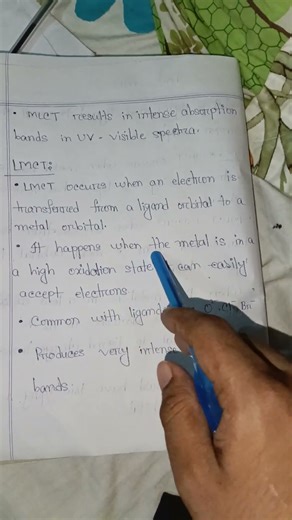 • MLCT results in intense absorption
bands in UV - visible spectra.
LMCT:
• LMCT occurs when an electron is
transferred from a ligand orbital to a
metal orbital.
• It happens when the metal is in a
a high oxidation state can easily
accept electrons
• Common with ligands O⁻ Cl⁻ Br⁻
• Produces very intense
bands.